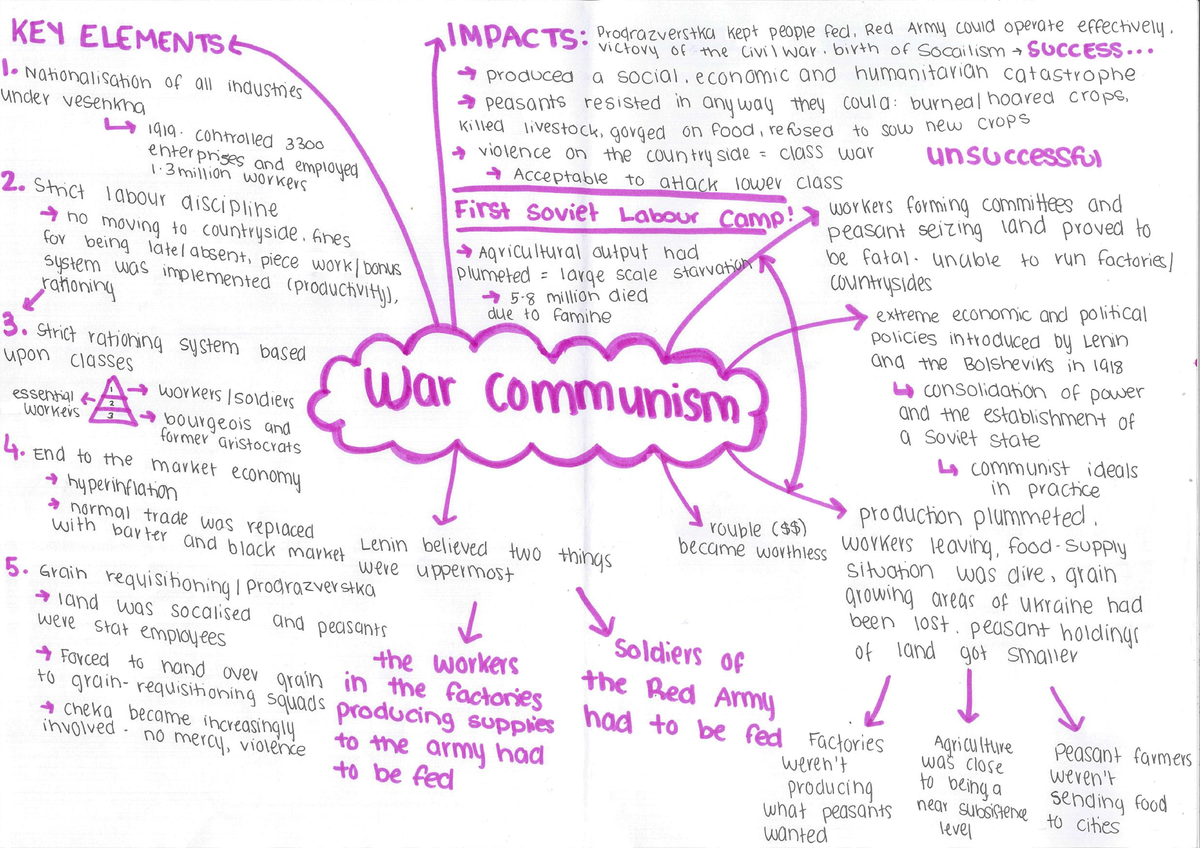 KEY ELEMENTS
1. Nationalisation of all industries
under vesenkha
1919. controlled 3300
enterprises and employed
1.3 million workers
2. Strict labour discipline
no moving to countryside. fines
for being late/absent, piece work/bonus
system was implemented (productivity),
rationing
3. Strict rationing system based
upon classes
essential
workers
1
2
3
workers/soldiers
bourgeois and
former aristocrats
4. End to the market economy
hyperinflation
normal trade was replaced
with barter and black market
5. Grain requisitioning/prodrazverstka
land was socalised and peasants
were stat employees
Forced to hand over grain
to grain-requisitioning squads
cheka became increasingly
involved - no mercy, violence
IMPACTS: Prodrazverstka kept people fed, Red Army could operate effectively.
victory of the civil war. birth of Socailism → SUCCESS...
produced a social, economic and humanitarian catastrophe
peasants resisted in anyway they could: burned/hoared crops,
killed livestock, gorged on food, refused to sow new crops
violence on the countryside = class war
unsuccessful
Acceptable to attack lower class
First Soviet Labour Camp!
Agricultural output had
plumeted = large scale starvation
5-8 million died
due to famine
War Communism
workers forming committees and
peasant seizing land proved to
be fatal. unable to run factories/
countrysides
extreme economic and political
policies introduced by Lenin
and the Bolsheviks in 1918
consolidation of power
and the establishment of
a Soviet state
communist ideals
in practice
production plummeted.
workers leaving, food-supply
situation was dire, grain
growing areas of Ukraine had
been lost. peasant holdings
of land got smaller
Factories
weren't
producing
what peasants
wanted
Agriculture
was close
to being a
near subsistence
level
peasant farmers
weren't
sending food
to cities
rouble ($$)
became worthless
Lenin believed two things
were uppermost
the workers
in the factories
producing supplies
to the army had
to be fed
Soldiers of
the Red Army
had to be fed